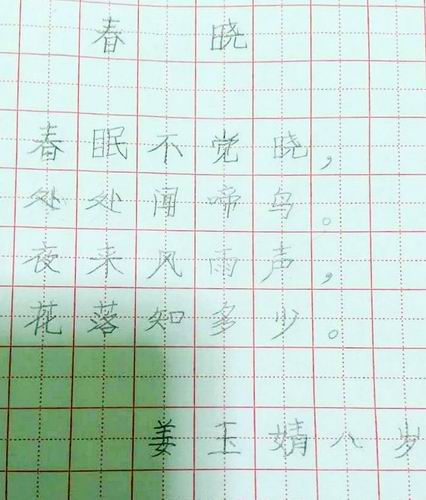 春 晓
春眠不觉晓，
处处闻啼鸟。
夜来风雨声，
花落知多少。
姜玉婧八岁